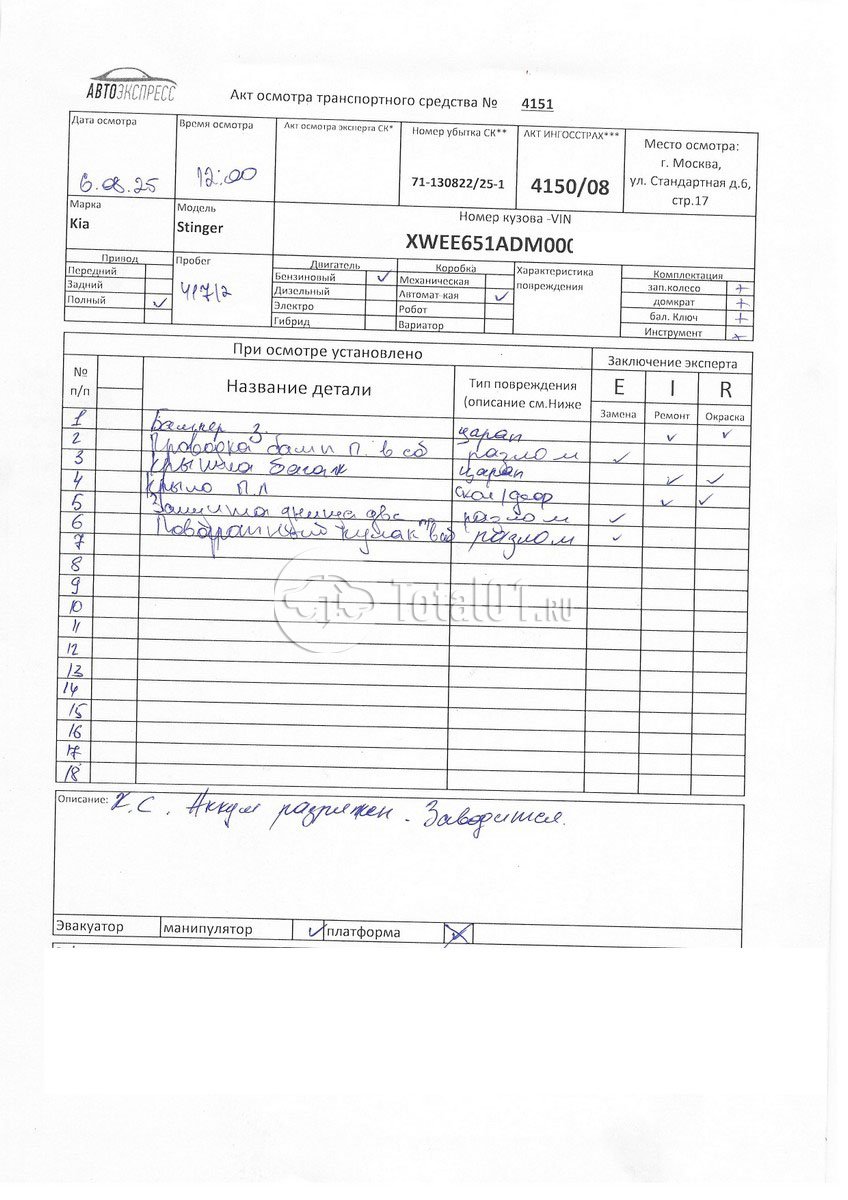 АВТОЭКСПРЕСС
Акт осмотра транспортного средства № 4151
Дата осмотра
6.08.25
Время осмотра
12:00
Акт осмотра эксперта СК*
Номер убытка СК**
71-130822/25-1
АКТ ИНГОССТРАХ***
4150/08
Место осмотра:
г. Москва,
ул. Стандартная д.6,
стр.17
Марка
Kia
Модель
Stinger
Номер кузова -VIN
XWEE651ADM000
Привод
Передний
Задний
Полный
Пробег
41712
Двигатель
Бензиновый
Дизельный
Электро
Гибрид
Коробка
Механическая
Автомат-кая
Робот
Вариатор
Характеристика
повреждения
Комплектация
зап.колесо +
домкрат +
бал. Ключ +
Инструмент +
При осмотре установлено
Заключение эксперта
№
п/п
Название детали
Тип повреждения
(описание см.Ниже
E I R
Замена Ремонт Окраска
1 Бампер З. царап
2 Проводка бамп П. в сб разлом
3 Крышка багаж царап
4 Крыло П.Л скол/деф
5 Защита днища двс разлом
6 Поворотный кулак пр в сб разлом
7
8
9
10
11
12
13
14
15
16
17
18
Total01.RU
Описание: Х.С. Аккум разряжен. Заводится.
Эвакуатор манипулятор платформа